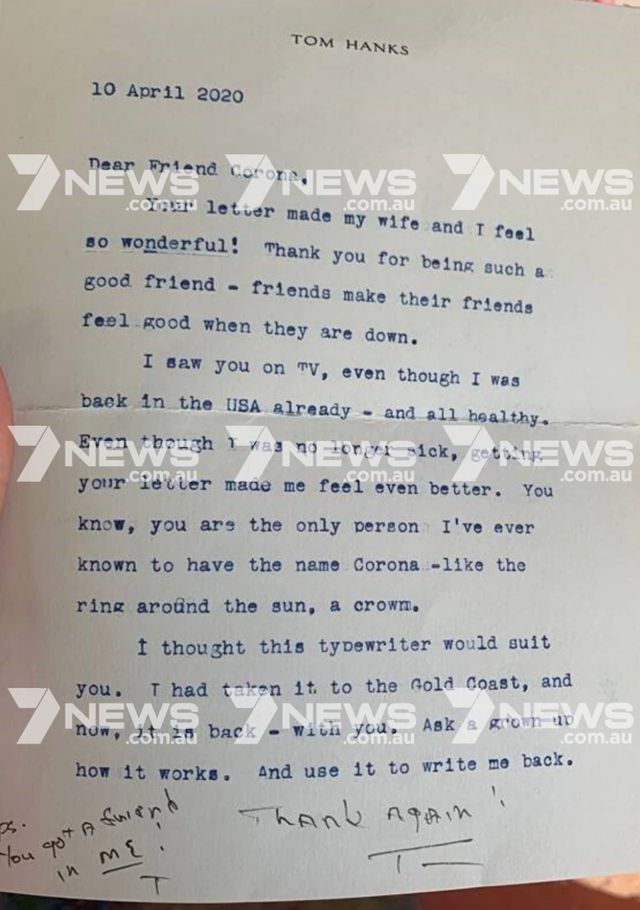 TOM HANKS
10 April 2020
Dear Friend Corona,
7NEWS .com.au 7NEWS .com.au 7NEWS .com.au
Your letter made my wife and I feel
so wonderful! Thank you for being such a
good friend - friends make their friends
feel good when they are down.
I saw you on TV, even though I was
back in the USA already - and all healthy.
Even though I was no longer sick, getting
7NEWS .com.au 7NEWS .com.au 7NEWS .com.au
your letter made me feel even better. You
know, you are the only person I've ever
known to have the name Corona -like the
ring around the sun, a crowm.
I thought this typewriter would suit
you. I had taken it to the Gold Coast, and
now, it is back - with you. Ask a grown-up
7NEWS .com.au 7NEWS .com.au 7NEWS .com.au
how it works. And use it to write me back.
THANK AGAIN!
T
PS.
You got A friend
in ME!
T